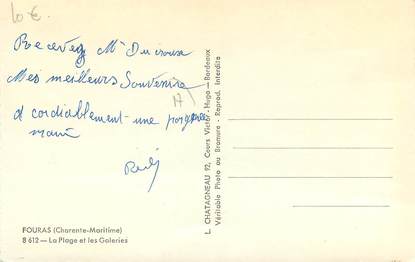 10 €
Recevez Mr Ducroux
Mes meilleurs Souvenirs
17
et cordiablement une poignée
main
L. CHATAGNEAU 92, Cours Victor-Hugo - Bordeaux
Véritable Photo au Bromure - Reprod. Interdite
FOURAS (Charente-Maritime)
8 612 — La Plage et les Galeries